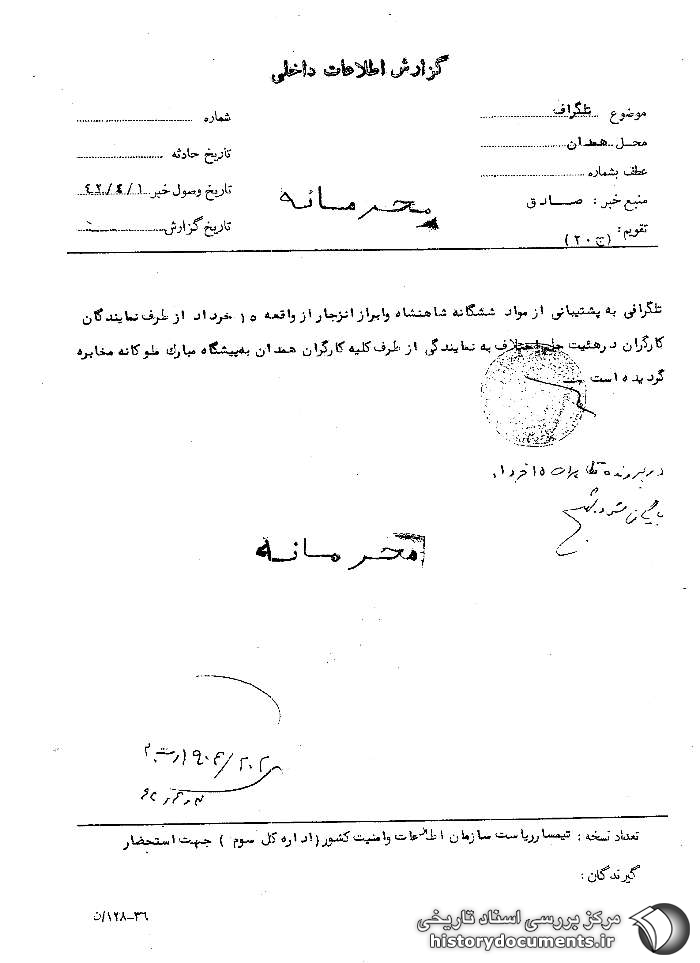 گزارش اطلاعات داخلی
موضوع تلگراف
محل همدان
عطف بشماره
منبع خبر : صادق
تقویم : (ج ۲۰)
شماره
تاریخ حادثه
تاریخ وصول خبر ۴۲/۴/۱
تاریخ گزارش
محرمانه
تلگرافی به پشتیبانی از مواد ششگانه شاهنشاه وابراز انزجار از واقعه ۱۵ خرداد از طرف نمایندگان
کارگران در هئیت حل اختلاف به نمایندگی از طرف کلیه کارگران همدان به پیشگاه مبارك ملوکانه مخابره
گردیده است
در پرونده تظاهرات ۱۵ خرداد
بایگانی شود
محرمانه
تعداد نسخه : تیمسار ریاست سازمان اطلاعات وامنیت کشور (اداره کل سوم ) جهت استحضار
گیرندگان :
۳۶-۱۲۸/ن
مرکز بررسی اسناد تاریخی
historydocuments.ir